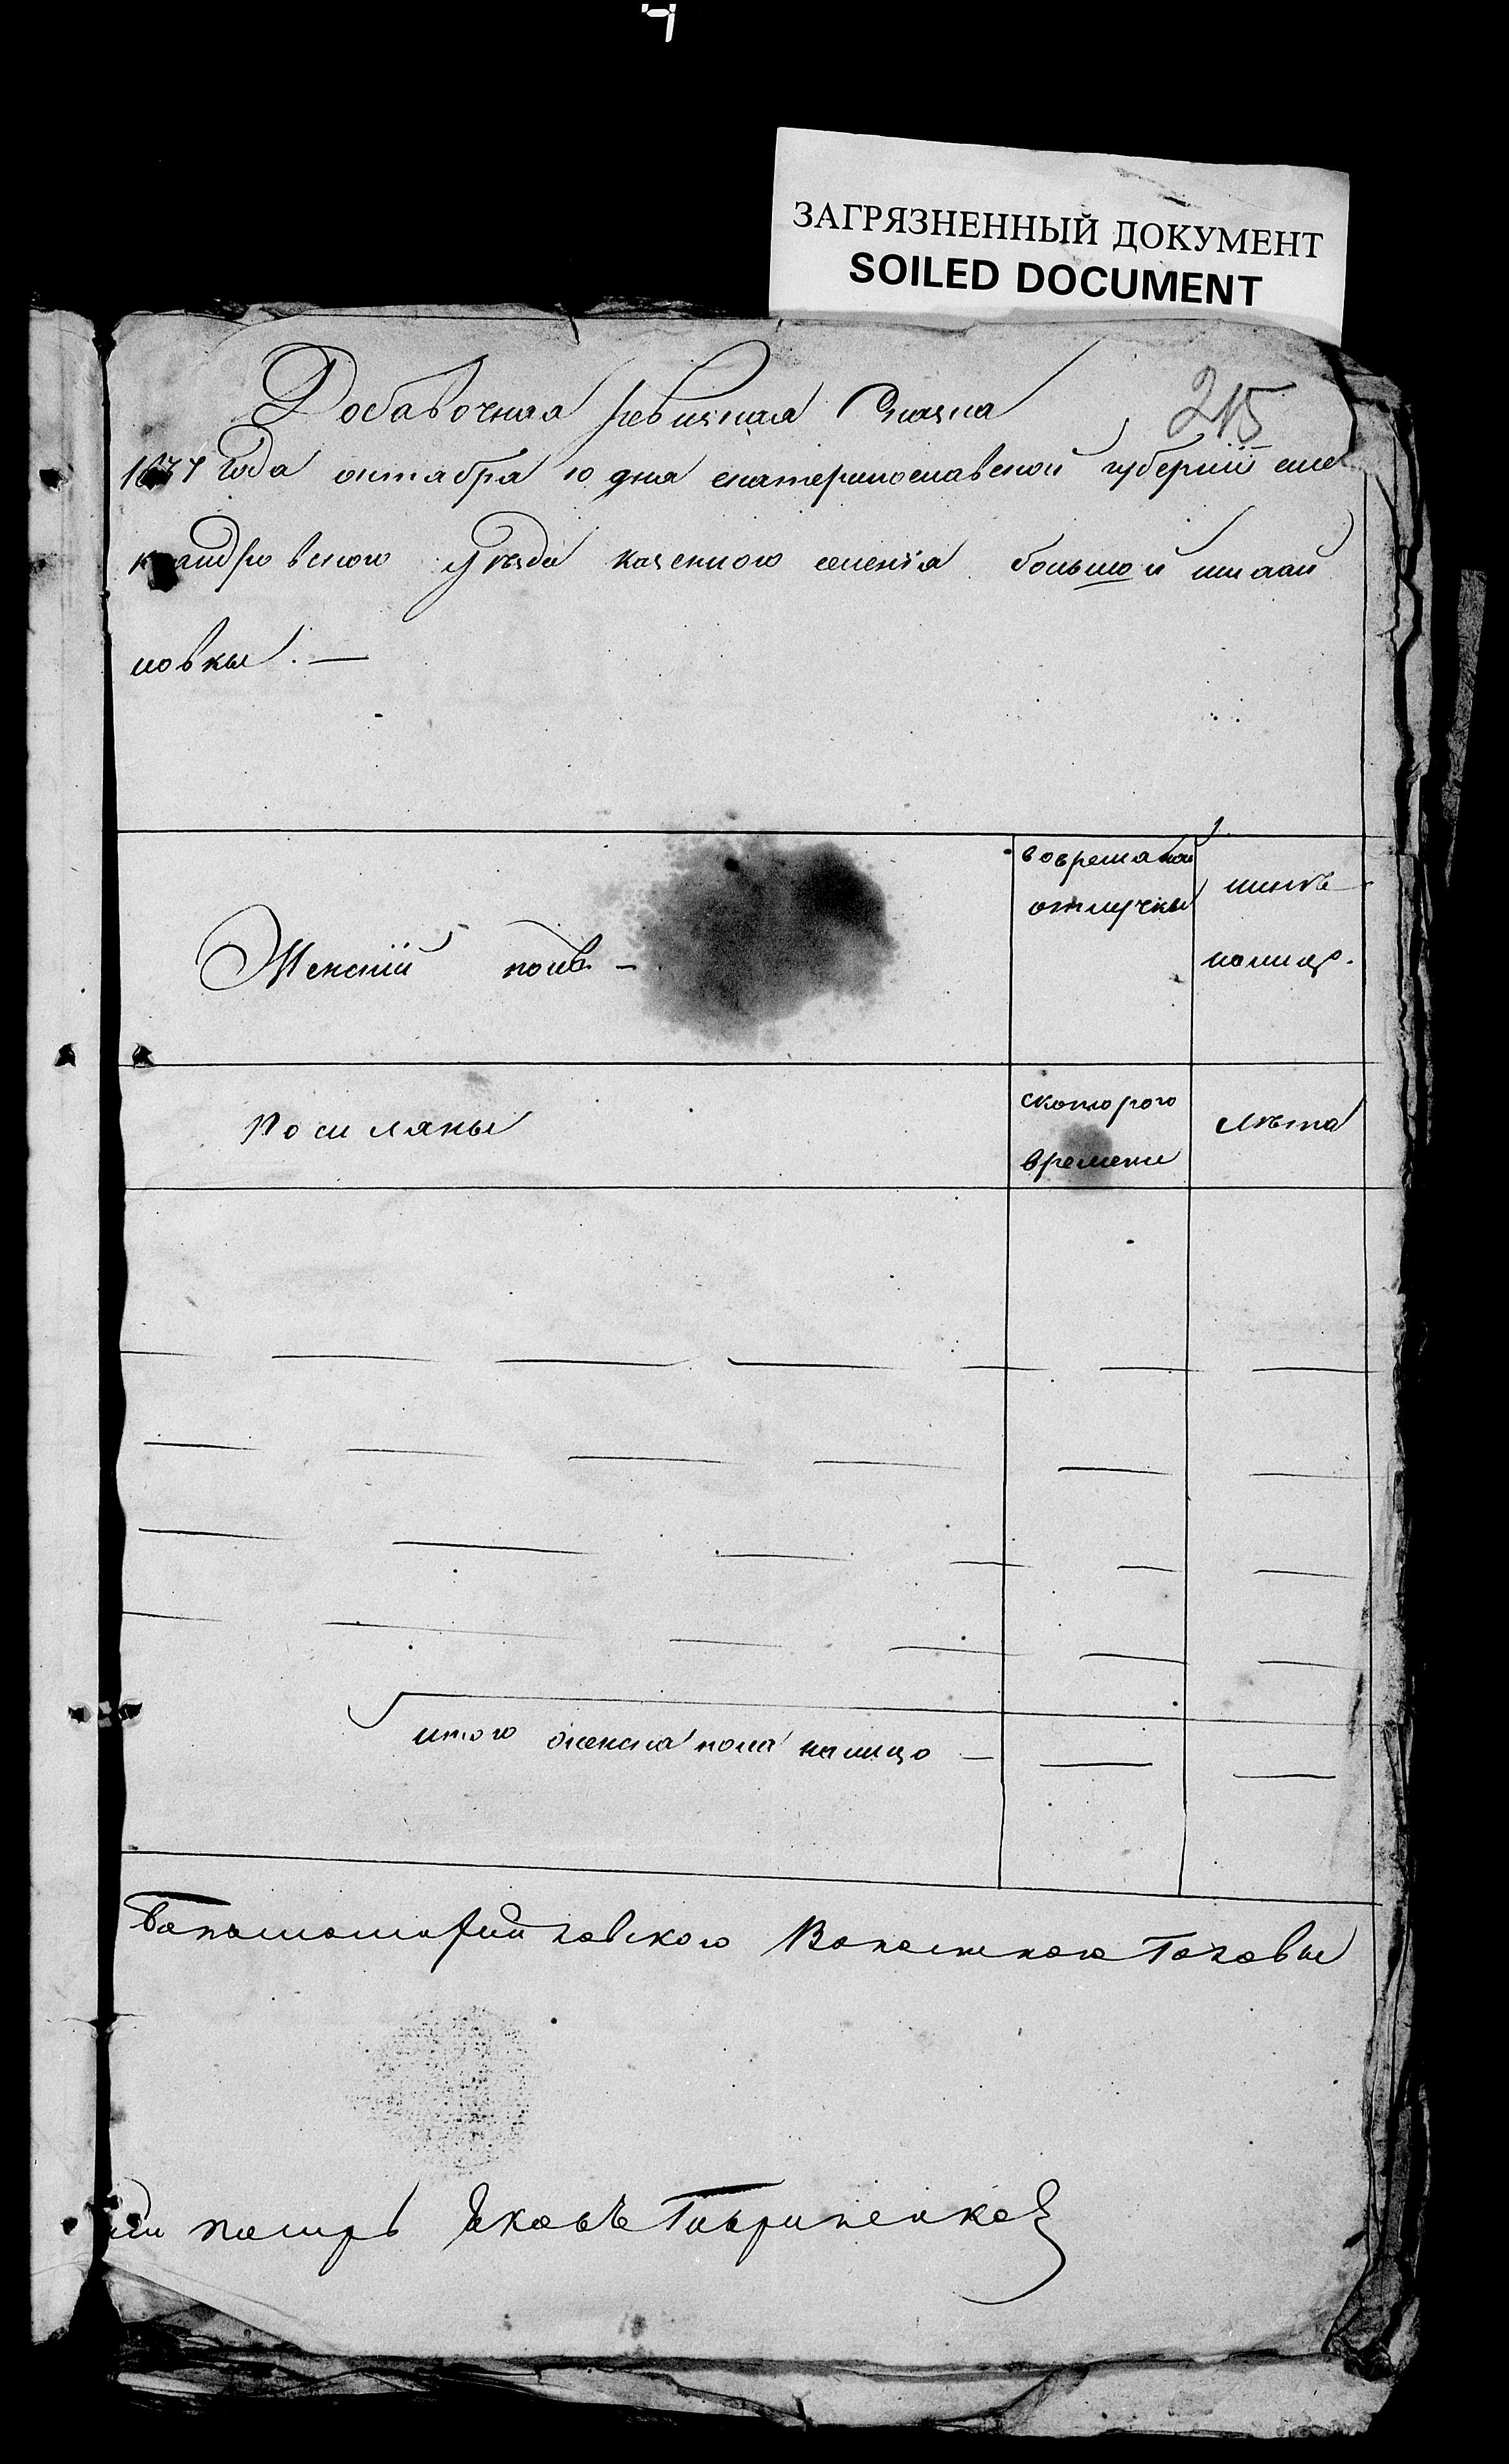 ЗАГРЯЗНЕННЫЙ ДОКУМЕНТ
SOILED DOCUMENT
215
Добавочная ревизская Сказка
года октября 10 дня екатеринославской губернїи алек
андровского уѣзда казенного селенїя большой михай
ловки. —
Женскїй полъ —
вовремяной
отлучки
нинѣ
налицо.
Поселяны
скоторого
времени
Лѣта
итого женска пола налицо —
Волостного Головы
Яковъ Гавриленко